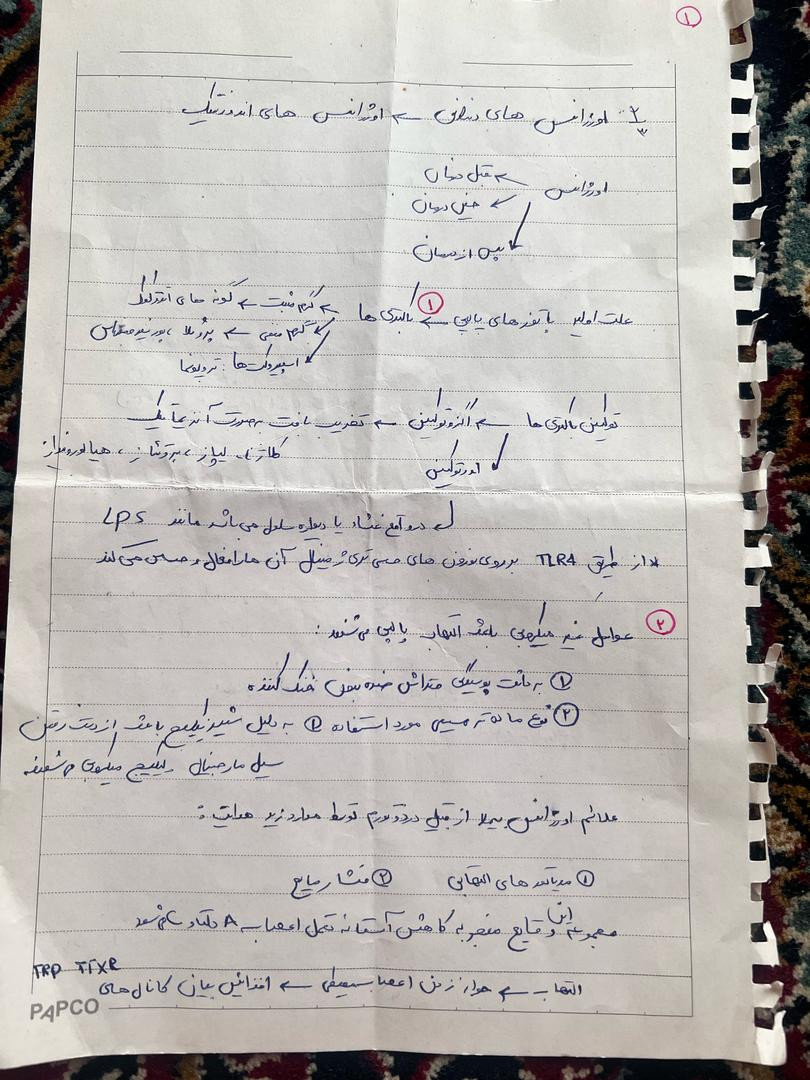 ۱
اورژانس های دندانی ← اورژانس های اندودنتیک
اورژانس ← قبل درمان
← حین درمان
← پس از درمان
علت اولیه پاتوژنهای پالپی ← ① باکتری ها ← گرم مثبت ← گونه های
← گرم منفی ← پروتلا ، پورفیروموناس
← اسپیروکت ها : تروپونما
توکسین باکتری ها ← اگزوتوکسین ← تخریب بافت به صورت آنزیماتیک
کلاژناز، لیپاز ، پروتئاز ، هیالورونیداز
← اندوتوکسین
در واقع غشاء یا دیواره سلول می باشد مانند LPS
* از طریق TLR4 بر روی نورون های حسی تری ژمینال آن ها را فعال و حساس می کند
② عوامل غیر میکروبی باعث التهاب پالپی می شوند :
① برداشت پوسیدگی و تراش بدون خنک کننده
② نوع ماده ترمیمی مورد استفاده ① به دلیل شرینکیج باعث از دست رفتن
سیل مارجینال لیکیج میکروبی می شود
علائم اورژانس بیمار از قبیل درد و تورم توسط موارد زیر هدایت :
① مدیاتور های التهابی ② فشار مایع
مجموعه این وقایع منجر به کاهش آستانه تحمل اعصاب A دلتا و C می شود
التهاب ← جوانه زدن اعصاب محیطی ← افزایش بیان کانال های
TRP TTXR
PAPCO